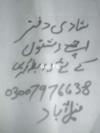 شادی دفتر
اچھے رشتوں
کے لئے رابطہ کریں
03007976638